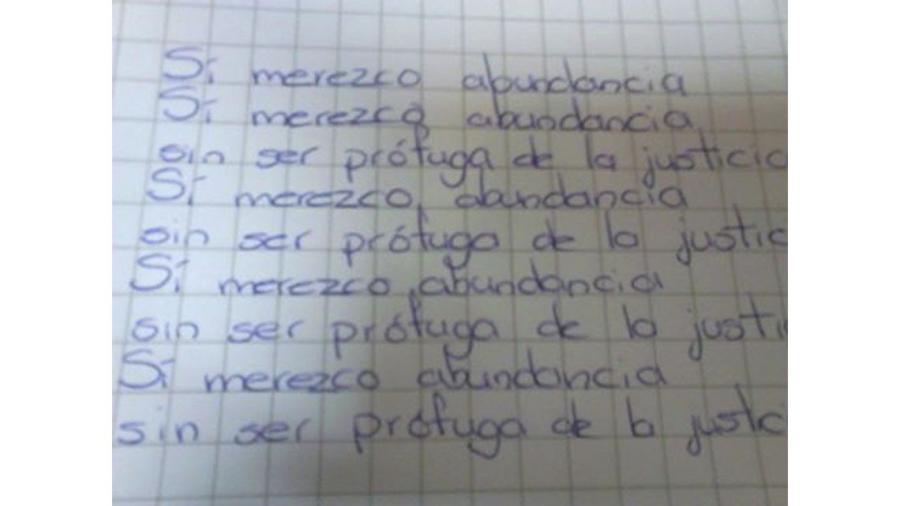 Sí merezco abundancia
Sí merezco abundancia
sin ser prófuga de la justicia
Sí merezco abundancia
sin ser prófuga de la justic
Sí merezco abundancia
sin ser prófuga de la justi
Sí merezco abundancia
sin ser prófuga de la justic